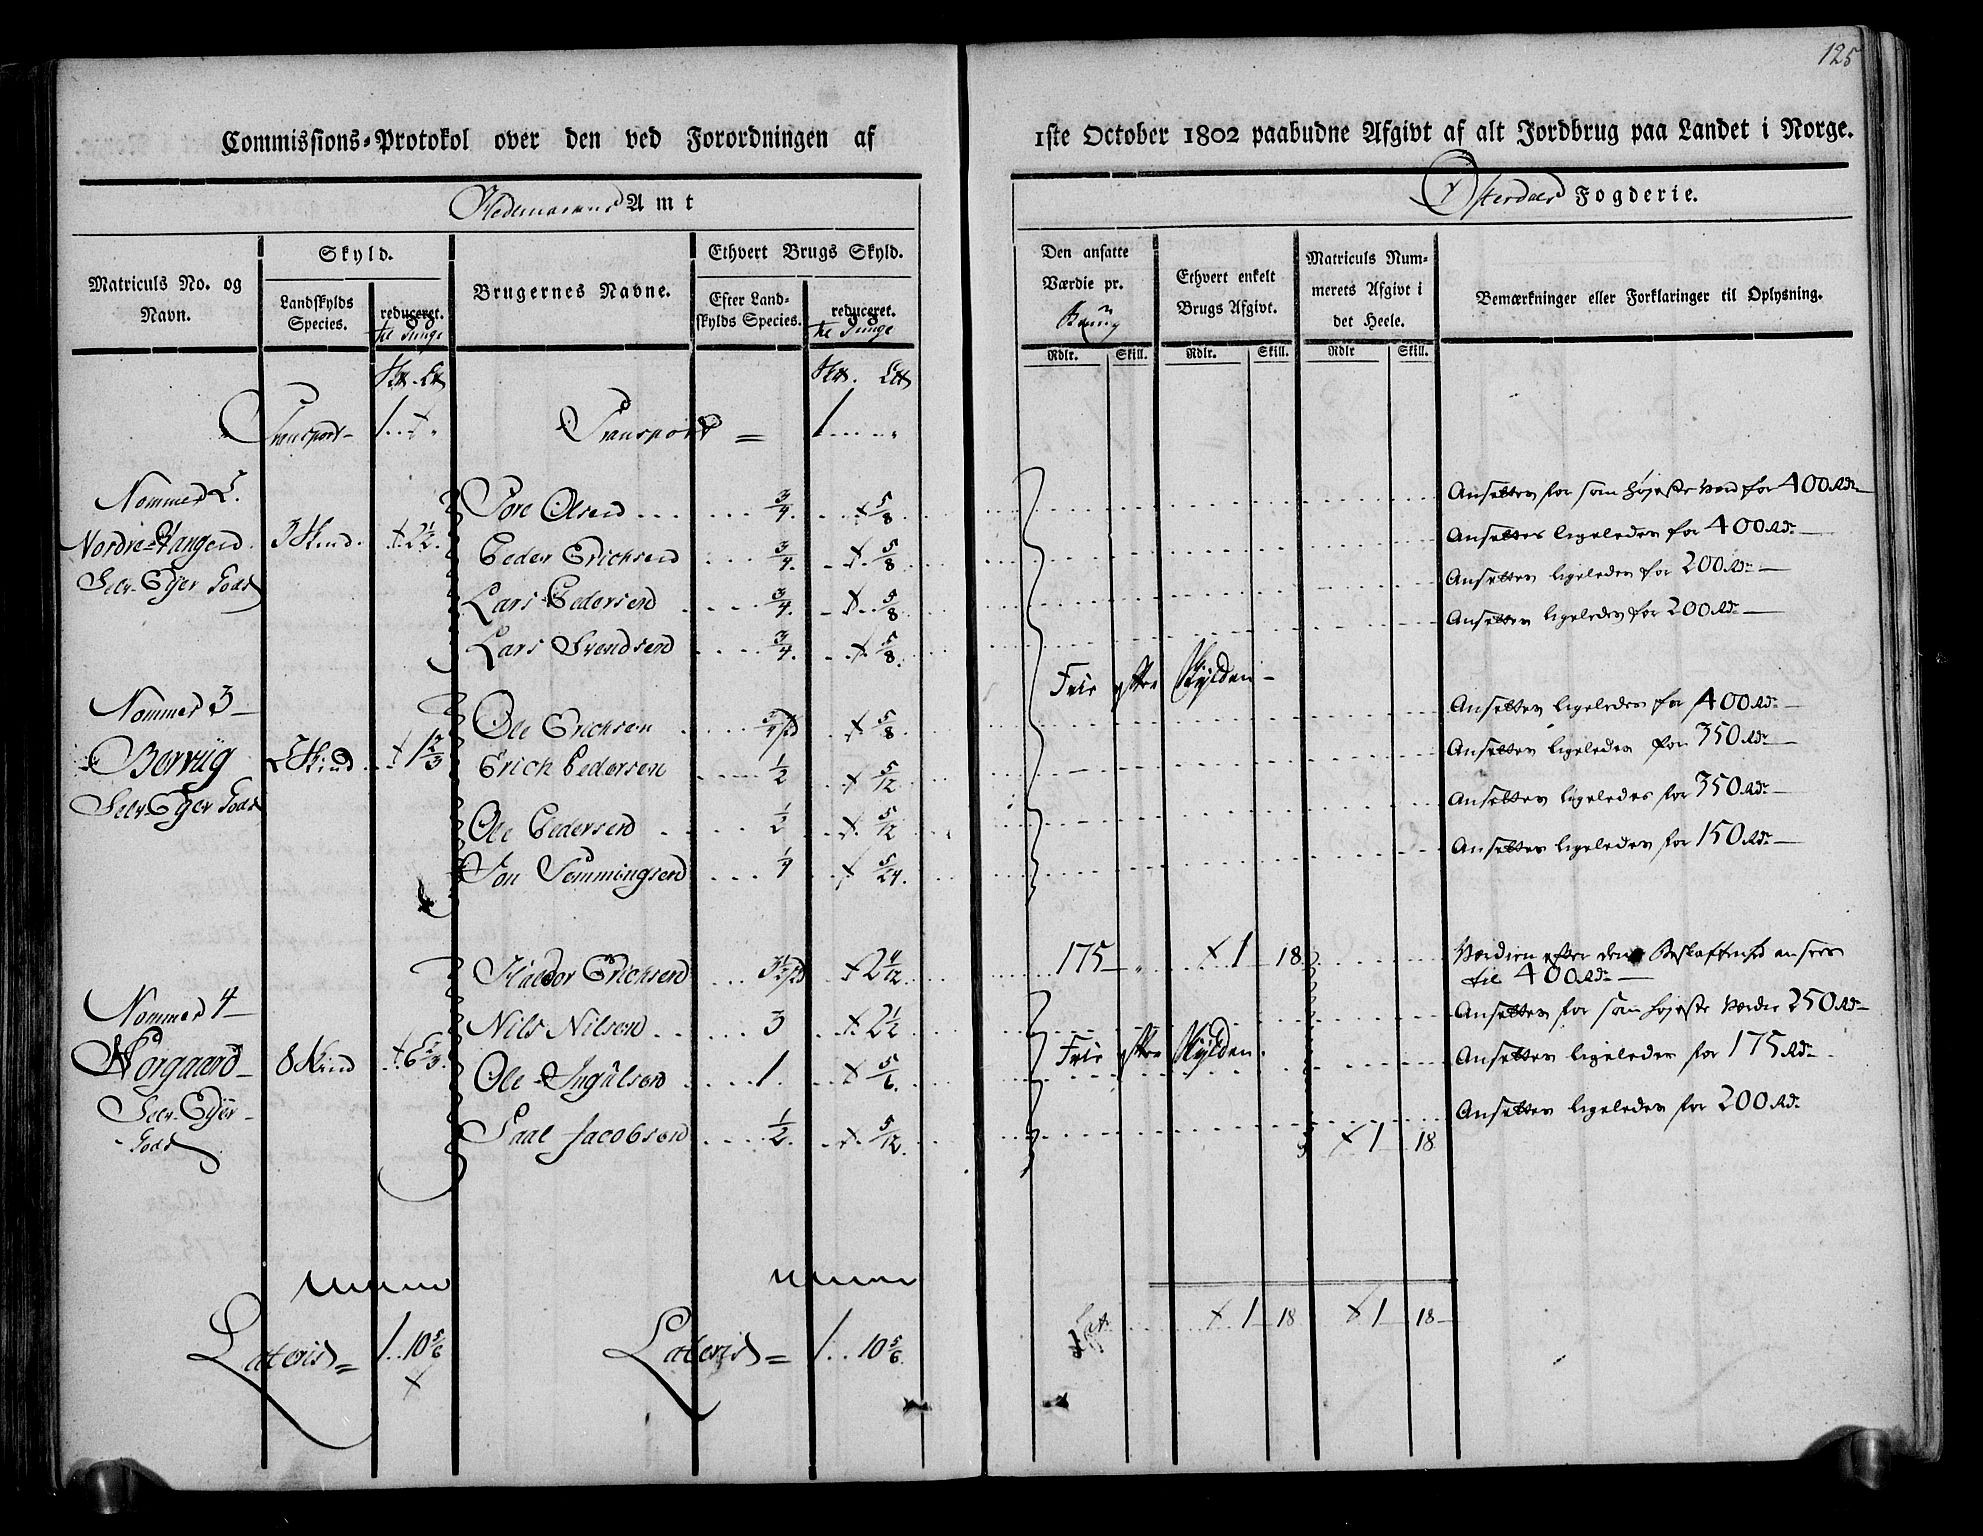 125
Commissions-Protokol over den ved Forordningen af 1ste October 1802 paabudne Afgivt af alt Jordbrug paa Landet i Norge.
Hedemarkens Amt
Østerdals Fogderie.
Matriculs No. og Navn.
Skyld.
Landskylds Species.
reduceret.
til Tunge
Brugernes Navne.
Ethvert Brugs Skyld.
Efter Landskylds Species.
reduceret.
til Tunge
Den ansatte Værdie pr.
Brug
Ethvert enkelt Brugs Afgivt.
Matriculs Nummerets Afgivt i det Heele.
Bemærkninger eller Forklaringer til Oplysning.
Rdlr. Skill. Rdlr. Skill. Rdlr Skill.
Transport 1
Transport = 1
Nommer 5.
Nordre
Selv-Ejer Gods
3 Skind. 2 1/2
Tore Olsen 3/4 5/8 Ansettes for som højeste værd for 400 Rdr
Peder Erichsen 3/4 5/8 Ansettes ligeledes for 400 Rdr
Lars Pedersen 3/4 5/8 Ansettes ligeledes for 200 Rdr
Lars Svendsen 3/4 5/8 Ansettes ligeledes for 200 Rdr
Frie efter Skylden
Nommer 3
Selv-Ejer Gods
Skind 1 2/3
Ole Erichsen 3/4 5/8 Ansettes ligeledes for 400 Rdr
Erich Pedersen 1/2 5/12 Ansettes ligeledes for 350 Rdr
Ole Pedersen 1/2 5/12 Ansettes ligeledes for 350 Rdr
Jon Semmingsen 1/4 5/24 Ansettes ligeledes for 150 Rdr
Nommer 4
Norgaard
Selv-Ejer
Gods
8 Skind 6 2/3
Haldor Erichsen 3 1/2 175 1 18 Værdien efter dens Beskaffenhed ansees
til 400 Rdr
Nils Nilsen 3 2 1/2 Ansettes for som højeste Værdie 250 Rdr
Ole Ingulsen 1 5/6 Frie efter Skylden Ansettes ligeledes for 175 Rdr
Paal Jacobsen 1/2 5/12 1 18 Ansettes ligeledes for 200 Rdr
Lateris = 1 10 5/6
Lateris = 1 10 5/6
Lat 1 18 1 18